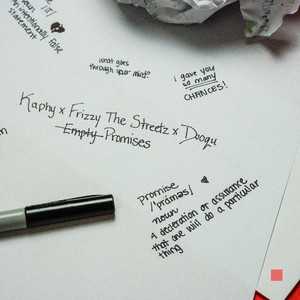 /ɪr/
noun
intentionally false
statement
what goes
through your mind?
i gave you
so many
CHANCES!
Kaphy x Frizzy The Streetz x Dooqu
Empty Promises
Promise
/ˈpräməs/
noun
A declaration or assurance
that one will do a particular
thing